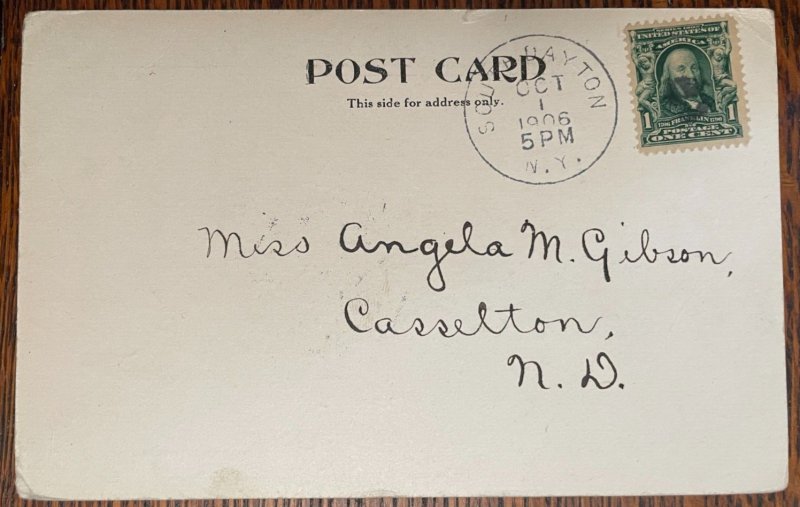 POST CARD
This side for address only.
SOUTH DAYTON
OCT
1
1906
5 PM
N.Y.
SERIES 1902
UNITED STATES OF
AMERICA
1 FRANKLIN 1
POSTAGE
ONE CENT
Miss Angela M. Gibson,
Casselton,
N. D.